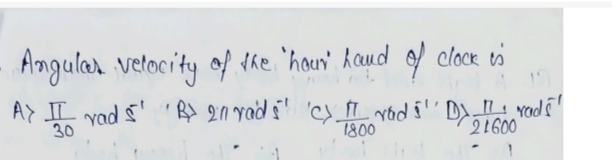 Angular velocity of the 'hour' hand of clock is
A) π/30 rad s⁻¹ B) 2π rad s⁻¹ C) π/1800 rad s⁻¹ D) π/21600 rad s⁻¹